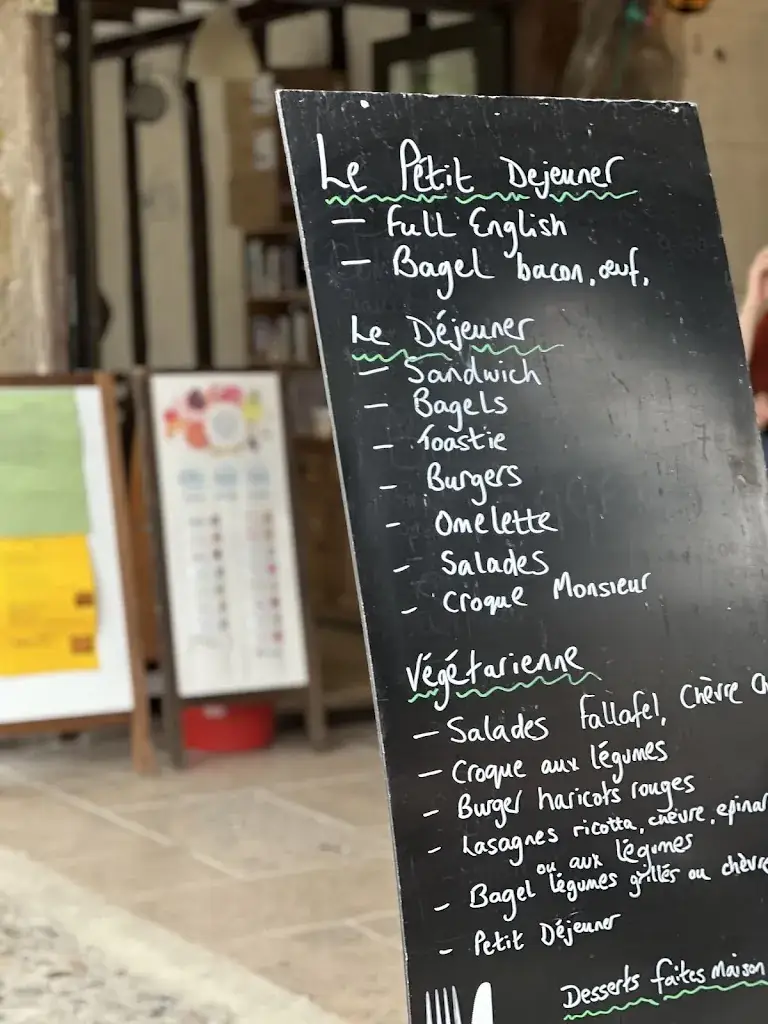 Le Petit Dejeuner
– Full English
– Bagel bacon, œuf,
Le Déjeuner
– Sandwich
– Bagels
– Toastie
– Burgers
– Omelette
– Salades
– Croque Monsieur
Végétarienne
– Salades Fallafel, Chèvre
– Croque aux légumes
– Burger haricots rouges
– Lasagnes ricotta, chèvre, epinar
ou aux légumes
– Bagel légumes grillés ou chèvre
– Petit Déjeuner
Desserts faites Maison